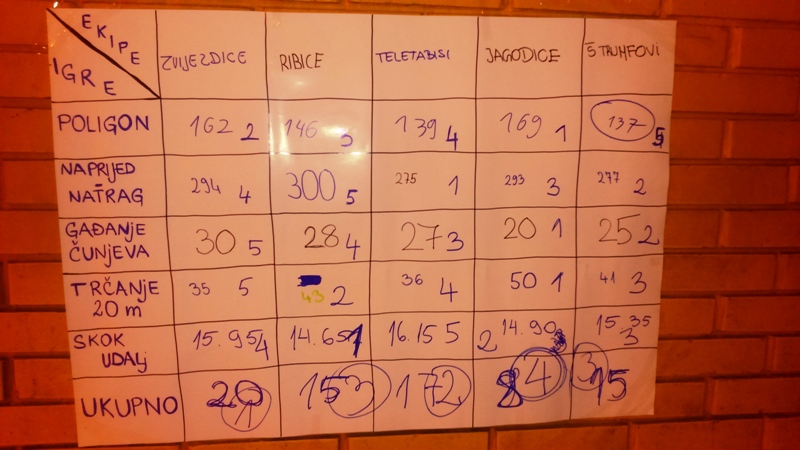 EKIPE
IGRE
ZVIJEZDICE RIBICE TELETABISI JAGODICE ŠTRUMFOVI
POLIGON 162 2 146 3 139 4 169 1 137 5
NAPRIJED NATRAG 294 4 300 5 275 1 293 3 277 2
GAĐANJE ČUNJEVA 30 5 28 4 27 3 20 1 25 2
TRČANJE 20 m 35 5 43 2 36 4 50 1 41 3
SKOK UDALJ 15.95 4 14.65 1 16.15 5 2 14.90 15.35 3
UKUPNO 20 1 15 3 17 2 8 4 3 15